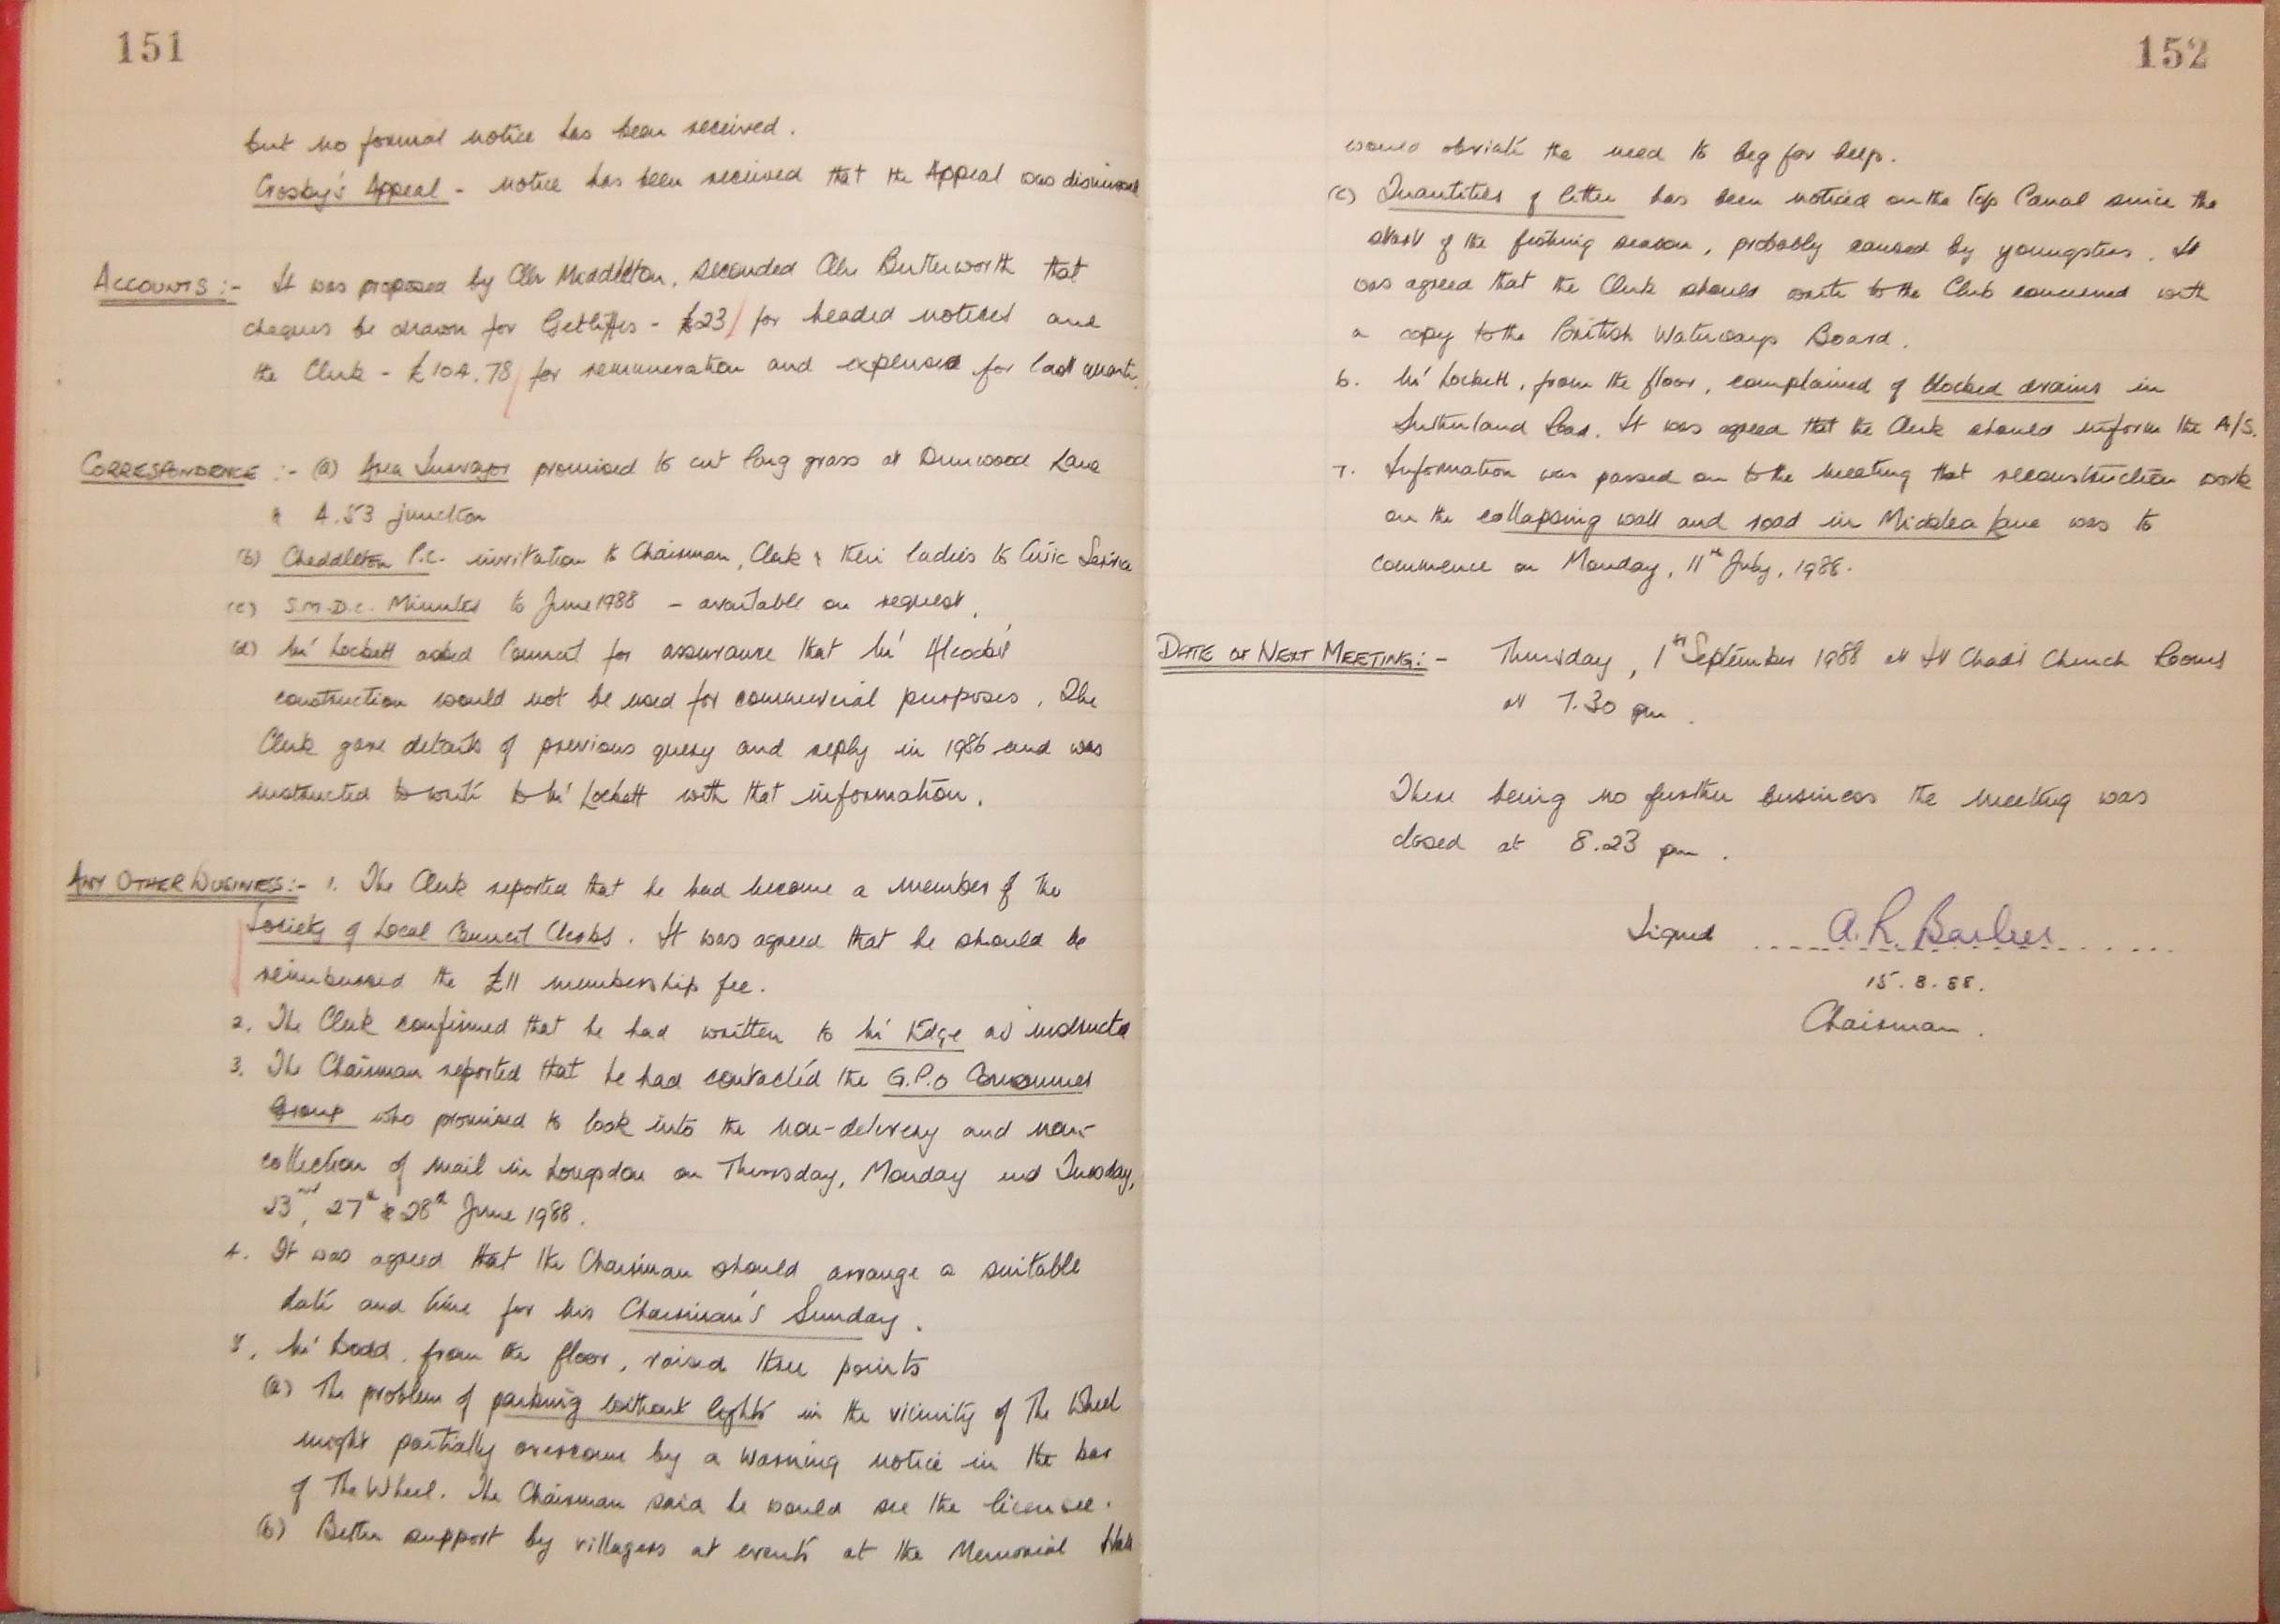 151
but no formal notice has been received.
Crosby's Appeal - notice has been received that the Appeal was dismissed
ACCOUNTS :- It was proposed by Cllr Middleton, seconded Cllr Butterworth that
cheques be drawn for Getliffes - £23 for headed notices and
the Clerk - £104.78 for remuneration and expenses for last quarter.
CORRESPONDENCE :- (a) Area Surveyor promised to cut long grass at Dunwood Lane
& A.53 junction
(b) Cheddleton P.C. invitation to Chairman, Clerk & their ladies to Civic Service
(c) S.M.D.C. Minutes to June 1988 - available on request.
(d) Mr Lockett asked Council for assurance that Mr Alcock's
construction would not be used for commercial purposes. The
Clerk gave details of previous query and reply in 1986 and was
instructed to write to Mr Lockett with that information.
ANY OTHER BUSINESS:- 1. The Clerk reported that he had become a member of the
Society of Local Council Clerks. It was agreed that he should be
reimbursed the £11 membership fee.
2. The Clerk confirmed that he had written to Mr Edge as instructed
3. The Chairman reported that he had contacted the G.P.O Consumer
Group who promised to look into the non-delivery and non-
collection of mail in Longsdon on Thursday, Monday and Tuesday,
23rd, 27th & 28th June 1988.
4. It was agreed that the Chairman should arrange a suitable
date and time for his Chairman's Sunday.
5. Mr Dodd, from the floor, raised three points
(a) The problem of parking without lights in the vicinity of The Wheel
might partially overcome by a warning notice in the bar
of The Wheel. The Chairman said he would see the licensee.
(b) Better support by villagers at events at the Memorial Hall
152
would obviate the need to beg for help.
(c) Quantities of litter has been noticed on the Top Canal since the
start of the fishing season, probably caused by youngsters. It
was agreed that the Clerk should write to the Club concerned with
a copy to the British Waterways Board.
6. Mr Lockett, from the floor, complained of blocked drains in
Sutherland Road. It was agreed that the Clerk should inform the A/S.
7. Information was passed on to the meeting that reconstruction work
on the collapsing wall and road in Micklea Lane was to
commence on Monday, 11th July, 1988.
DATE OF NEXT MEETING:- Thursday, 1st September 1988 at St Chad's Church Rooms
at 7.30 pm.
There being no further business the meeting was
closed at 8.23 pm.
Signed A.R. Barber
15.8.88.
Chairman.